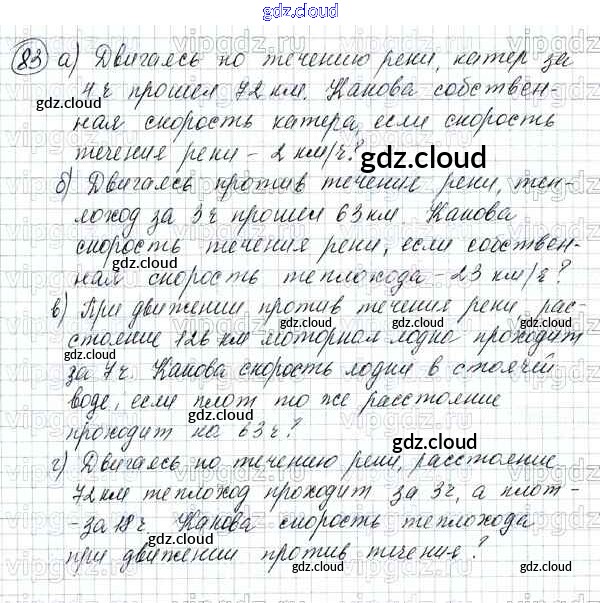 gdz.cloud
83 а) Двигаясь по течению реки, катер за
4 ч прошел 72 км. Какова собствен-
ная скорость катера, если скорость
течения реки - 2 км/ч?
б) Двигаясь против течение реки, теп-
лоход за 3 ч прошел 63 км. Какова
скорость течения реки, если собствен-
ная скорость теплохода - 23 км/ч?
в) При движении против течения реки, рас-
стояние 126 км моторная лодка проходит
за 7 ч. Какова скорость лодки в стоячей
воде, если плот то же расстояние
проходит на 63 ч?
г) Двигаясь по течению реки, расстояние
72 км теплоход проходит за 3 ч, а плот-
-за 18 ч. Какова скорость теплохода
при движении против течения?